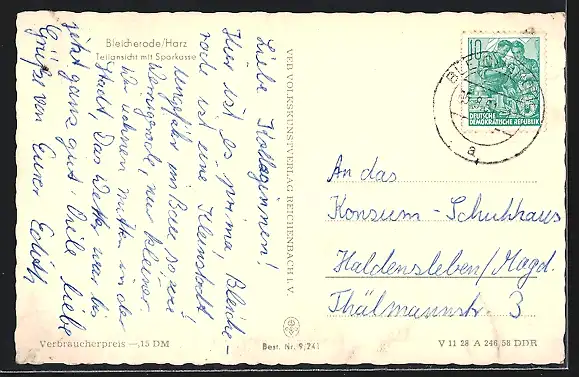 Bleicherode/Harz
Teilansicht mit Sparkasse
Liebe Kolleginnen!
Hier ist es prima, Bleiche-
rode ist eine Kleinstadt
ungefähr im Bau so wie
Wernigerode, nur kleiner.
Wir wohnen mitten in der
Stadt, Das Wetter war bis
jetzt ganz gut. Viele liebe
Grüße von Eurer Edith
Verbraucherpreis —,15 DM
VEB VOLKSKUNSTVERLAG REICHENBACH i. V.
Best. Nr. 9/241
10
DEUTSCHE
DEMOKRATISCHE REPUBLIK
a
An das
Konsum-Schuhhaus
Haldensleben/Magd.
Thälmannstr. 3
V 11 28 A 246 58 DDR